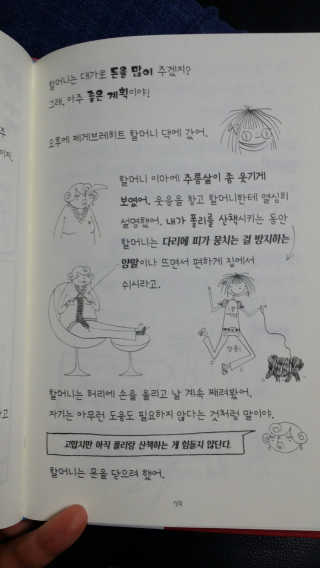 할머니는 대가로 돈을 많이 주겠지?
그래, 아주 좋은 계획이야!
오후에 제게브레히트 할머니 댁에 갔어.
할머니 이마에 주름살이 좀 웃기게
보였어. 웃음을 참고 할머니한테 열심히
설명했어. 내가 폴리를 산책시키는 동안
할머니는 다리에 피가 뭉치는 걸 방지하는
양말이나 뜨면서 편하게 집에서
쉬시라고.
할머니는 허리에 손을 올리고 날 계속 째려봤어.
자기는 아무런 도움도 필요하지 않다는 것처럼 말이야.
고맙지만 아직 폴리랑 산책하는 게 힘들지 않단다.
할머니는 문을 닫으려 했어.